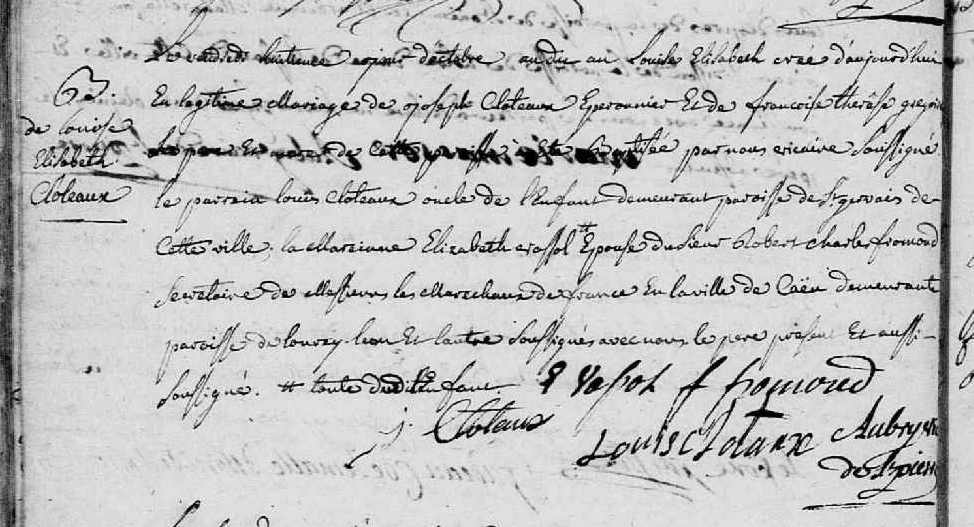 Le vendredi huitieme jour d'octobre an du au Louise Elisabeth née d'aujourd'hui
B.
de Louise
Elisabeth
Cloteaux
En legitime Mariage de joseph Cloteaux Eperonnier Et de francoise therèse
Les pere Et mere de Cette paroisse a Eté Baptisée par nous vicaire Soussigné
le parrain louis Cloteaux oncle de l'Enfant demeurant paroisse de St gervais de
Cette ville, la Marainne Elizabeth vassol # Epouse du Sieur Robert Charles fromond
Secretaire de Messieurs les Marechaux de france En la ville de Caën demeurante
paroisse de Et l'autre Soussignés avec nous le pere présent Et aussi
Soussigné. # tante dudit Enfant
E Vasol f fromond
j. Cloteaux
Louis Clotaux
Aubry
de St pierre